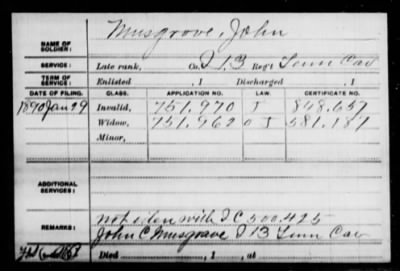 Musgrove, John
NAME OF SOLDIER:
SERVICE: Late rank, Co. I 13 Reg't Tenn Cav
TERM OF SERVICE: Enlisted , 1 Discharged , 1
DATE OF FILING. CLASS. APPLICATION NO. LAW. CERTIFICATE NO.
1890 Jan 29 Invalid, 751.970 J 848.657
Widow, 751.962 J 581.187
Minor,
ADDITIONAL SERVICES:
REMARKS: not iden with I C 500.425
John C Musgrave I 13 Tenn Cav
Died , 1 , at